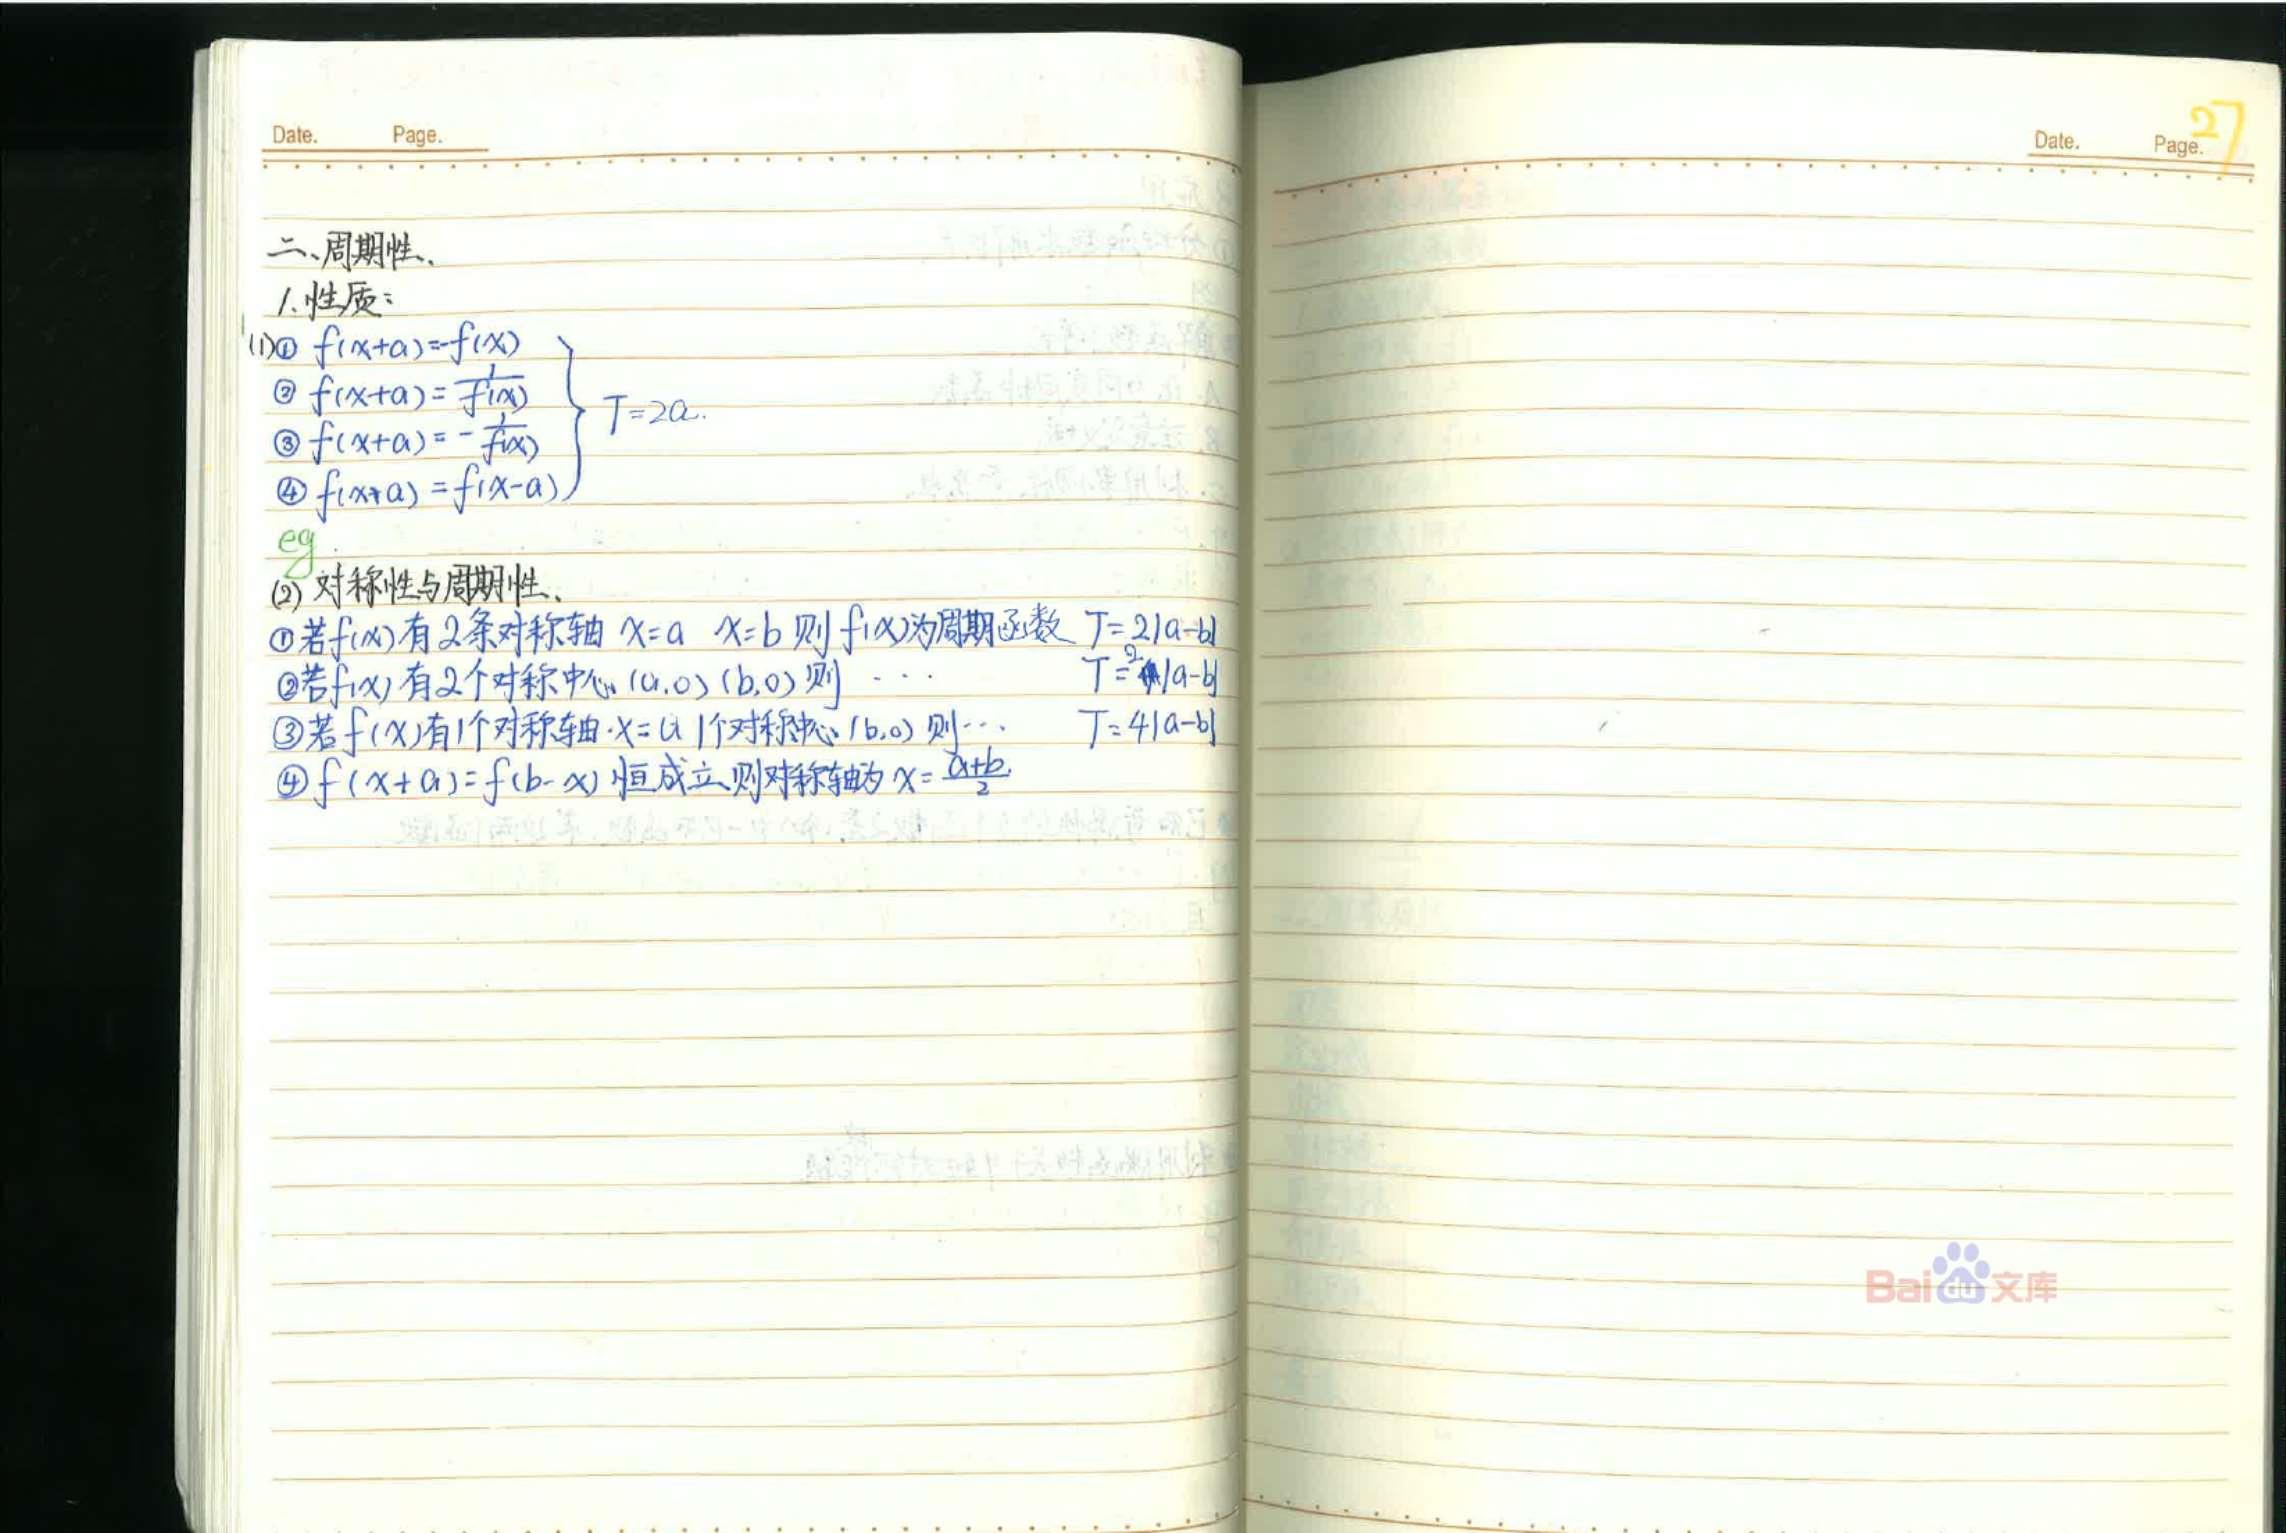 Date. Page.
二、周期性、
1.性质：
(1)① f(x+a)=-f(x)
② f(x+a)=1/f(x)
③ f(x+a)=-1/f(x)
④ f(x+a)=f(x-a)
T=2a.
eg.
(2) 对称性与周期性、
①若f(x)有2条对称轴 x=a x=b 则f(x)为周期函数 T=2|a-b|
②若f(x)有2个对称中心(a,0)(b,0)则 ··· T=2|a-b|
③若f(x)有1个对称轴·x=a 1个对称中心(b,0)则··· T=4|a-b|
④f(x+a)=f(b-x)恒成立则对称轴为x=a+b/2
27
Date. Page.
Baidu文库